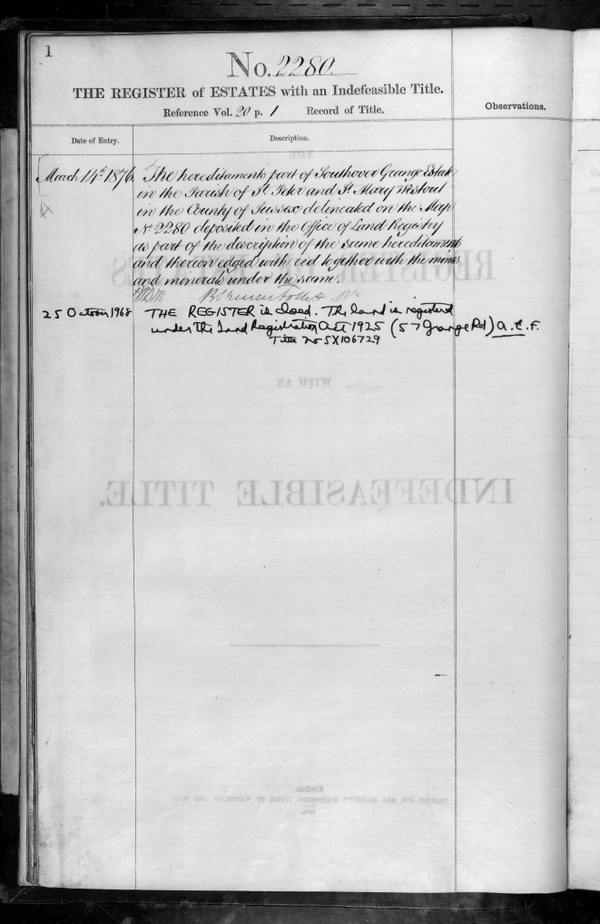 1
No. 2280
THE REGISTER of ESTATES with an Indefeasible Title.
Reference Vol. 20 p. 1 Record of Title.
Observations.
Date of Entry.
Description.
March 14th 1876.
The hereditaments part of Southover Grange Estate
in the Parish of St. Peter and St. Mary Westout
in the County of Sussex delineated on the Map
No 2280 deposited in the Office of Land Registry
as part of the description of the same hereditaments
and thereon edged with red together with the mines
and minerals under the same.
25 October 1968
THE REGISTER is closed. The land is registered
under the Land Registration Act 1925 (57 Grange Rd) A.C.F.
Title No SX106729
REGISTER
WITH AN
INDEFEASIBLE TITLE.
London: